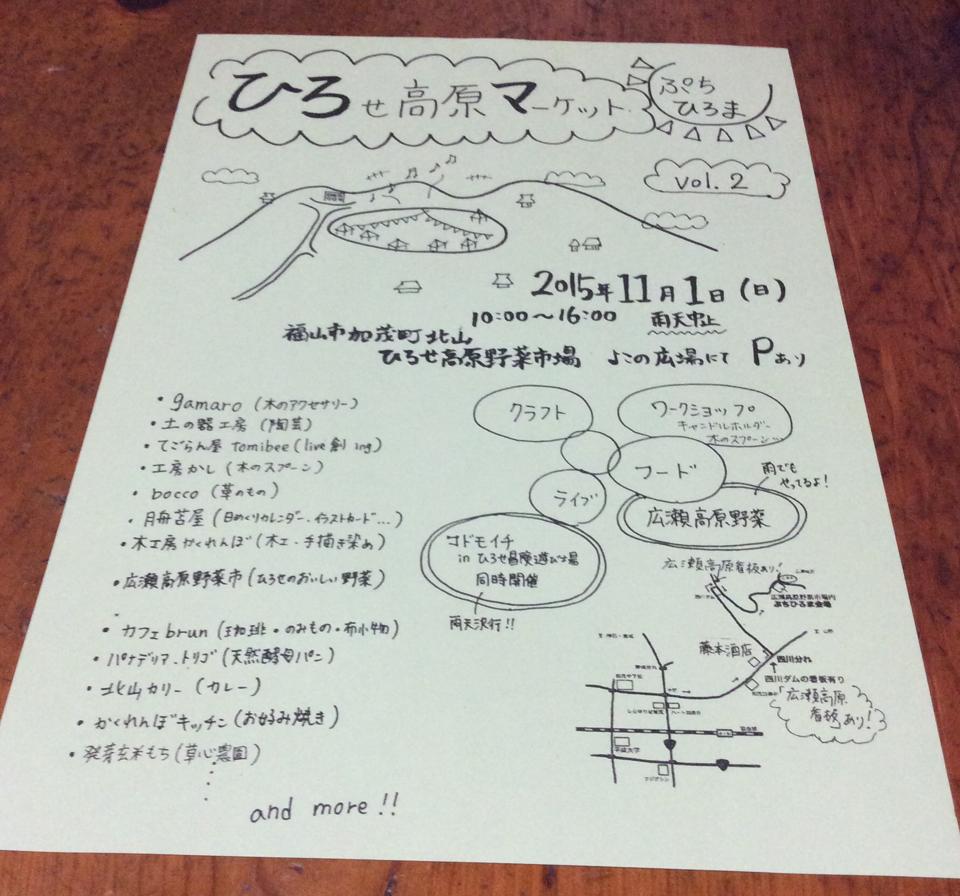 ひろせ高原マーケット
ぷち
ひろま
vol.2
2015年11月1日(日)
10:00〜16:00 雨天中止
福山市加茂町北山
ひろせ高原野菜市場 よこの広場にて Pあり
・gamaro(木のアクセサリー)
・土の器工房(陶芸)
・てごらん屋 tomibee(live創ing)
・工房かし(木のスプーン)
・bocco(草のもの)
・月舟苫屋(日めくりカレンダー・イラストカード...)
・木工房かくれんぼ(木工・手描き染め)
・広瀬高原野菜市(ひろせのおいしい野菜)
・カフェbrun(珈琲・のみもの・布小物)
・パナデリア・トリゴ(天然酵母パン)
・北山カリー(カレー)
・かくれんぼキッチン(お好み焼き)
・発芽玄米もち(草心農園)
and more!!
クラフト
ワークショップ
キャンドルホルダー
木のスプーン...
フード
ライブ
雨でも
やってるよ!
広瀬高原野菜
コドモイチ
in ひろせ冒険遊び場
同時開催
雨天決行!!
広瀬高原看板あり!
広瀬高原野菜市場内
ぷちひろま会場
藤本酒店
四川分れ
四川ダムの看板有り
「広瀬高原
看板」あり!
平成大学